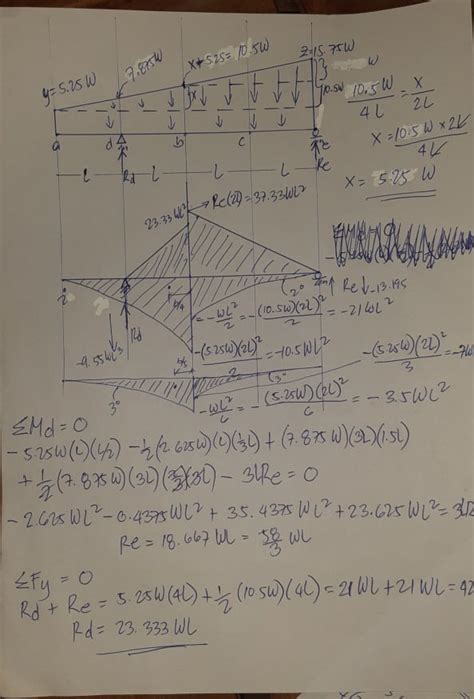 y=5.25W
7.875W
x+5.25=10.5W
z=15.75W
10.5W
x
10.5W/4L = x/2L
x = 10.5W × 2L/4L
x = 5.25 W
a d b c e
L L L L
Rd Re
23.33WL²
Re(2L)=37.33WL²
2°
Re
-13.195
= -WL²/2 = -(10.5W)(2L)²/2 = -21WL²
-4.55WL³
Rd
-(5.25W)(2L)²/2 = -10.5WL²
3°
-(5.25W)(2L)²/3 = -7W
3°
-WL²/6 = -(5.25W)(2L)²/6 = -3.5WL²
ΣMd = 0
-5.25W(L)(L/2) -½(2.625W)(L)(⅓L) + (7.875W)(3L)(1.5L)
+ ½(7.875W)(3L)(⅔)(3L) - 3LRe = 0
-2.625WL² - 0.4375WL² + 35.4375WL² + 23.625WL² = 3LR
Re = 18.667WL = 58/3 WL
ΣFy = 0
Rd + Re = 5.25W(4L) + ½(10.5W)(4L) = 21WL + 21WL = 42
Rd = 23.333WL